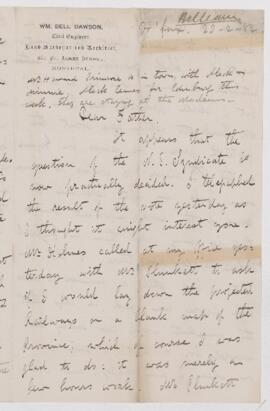 WM. BELL DAWSON,
Civil Engineer
Land Surveyor and Architect,
MONTREAL.
Halifax. 23-2-82
in town, with
for Edinburg this
week. They are staying at the
Dear Father.
It appears that the
question of the N.S. Syndicate is
now practically decided. I telegraphed
the result of the vote yesterday as
I thought it might interest you.
Mr Holmes called at my office yes-
terday with Mr Plunkett to ask
if I would lay down the projected
railways on a blank map of the
province; which of course I was
glad to do: it was merely a
few hours work. Mr Plunkett